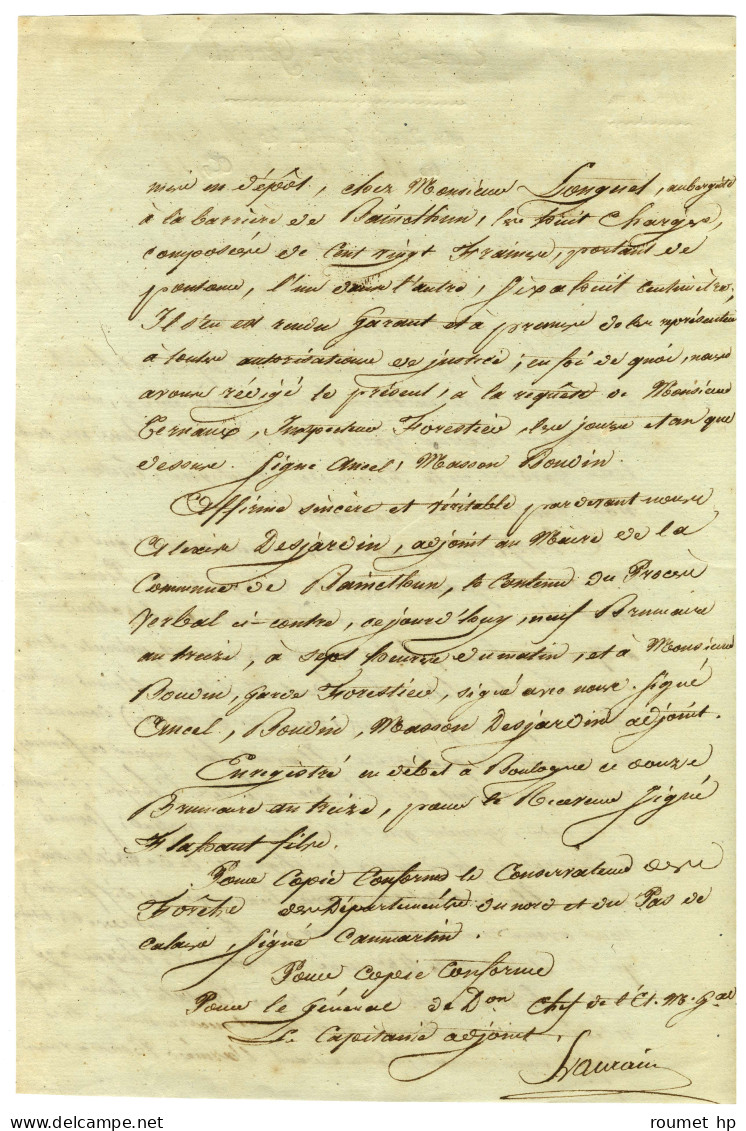 mis en dépôt, chez Monsieur Longuet, aubergiste
à la barrière de Bainethun, les huit Charges,
composées de Cent vingt fraines, portant de
pourtour, l'un dans l'autre, Six à huit centimètres,
Il s'en est rendu Garant et à promis de les représenter
à toutes autorisations de justice; en foi de quoi, nous
avons rédigé le présent, à la requête de Monsieur
Cernaux, Inspecteur Forestier, les jours et an que
dessus. Signé Ancel, Masson Bouvin.
Affirmé sincère et véritable pardevant nous
Alexis Desjardin, adjoint au Maire de la
Commune de Bainethun, le Contenu du Procès
Verbal ci-contre, cejourd'huy, neuf Brumaire
an treize, à sept heures du matin, et à Monsieur
Bouvin, garde Forestier, signé avec nous. Signé
Ancel, Bouvin, Masson Desjardin adjoint.
Enregistré en débet à Boulogne ce douze
Brumaire an treize, pour le Receveur Signé
Flahaut fils.
Pour Copie Conforme le Conservateur des
Forêts des Départements du nord et du Pas de
calais, Signé Caumartin.
Pour copie Conforme
Pour le Général de Don Chef de l'Et. M. Gal
Le Capitaine adjoint
delcampe.net
roumet hp